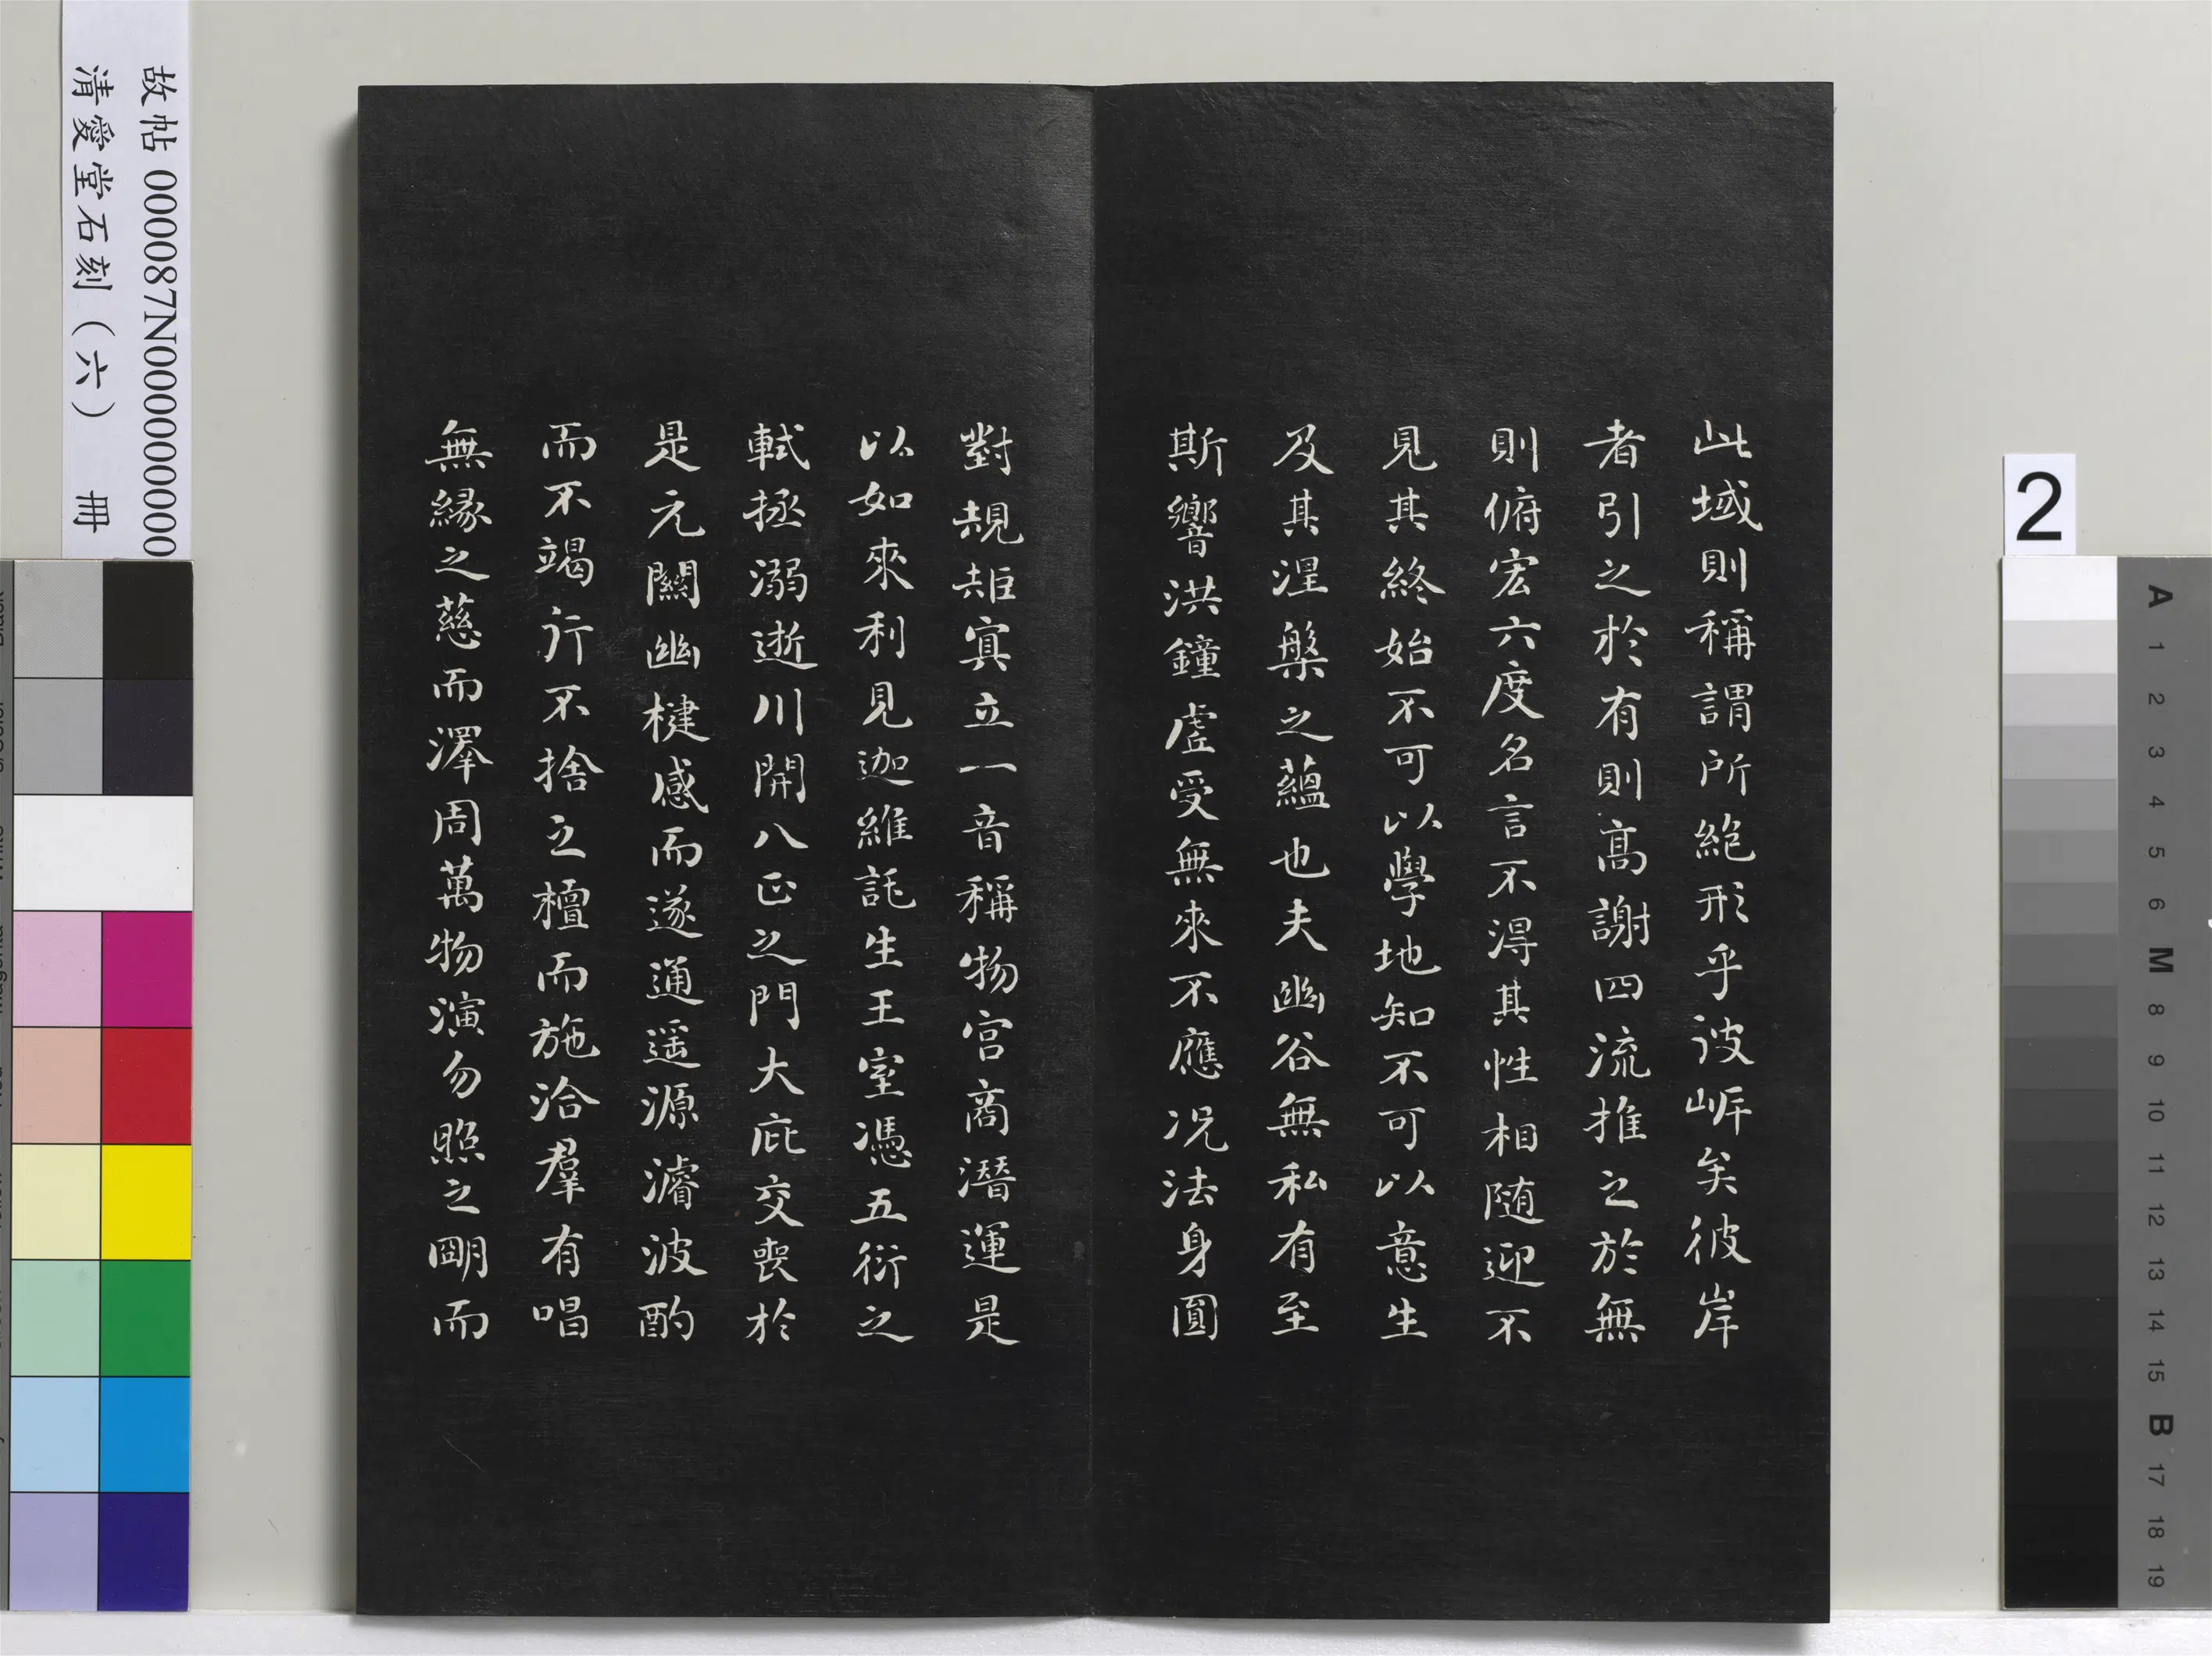 此域則稱謂所絕形乎彼岸矣彼岸
者引之於有則高謝四流推之於無
則俯宏六度名言不得其性相随迎不
見其終始不可以學地知不可以意生
及其涅槃之蘊也夫幽谷無私有至
斯響洪鐘虛受無來不應况法身圓
對規矩冥立一音稱物宮商潛運是
以如來利見迦維託生王室憑五衍之
軾拯溺逝川開八正之門大庇交喪於
是元關幽楗感而遂通遥源濬波酌
而不竭行不捨之檀而施洽羣有唱
無緣之慈而澤周萬物演勿照之朙而
故帖 000087N000000000
清愛堂石刻（六） 冊
2
A 1 2 3 4 5 6 M 8 9 10 11 12 13 14 15 B 17 18 19